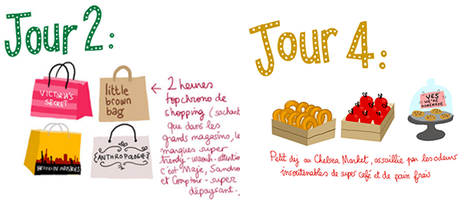 Jour 2:
VICTORIA'S SECRET
little
brown
bag
ANTHROPOLOGIE
← 2 heures
topchrono de
shopping (sachant
que dans les
grands magasins, les
marques super
trendy - waouh - attention
c'est Maje, Sandro
et Comptoir - super
dépaysant.
Jour 4:
YES
WE'RE
Petit dej au Chelsea Market, assaillie par les odeurs
insoutenables de super café et de pain frais